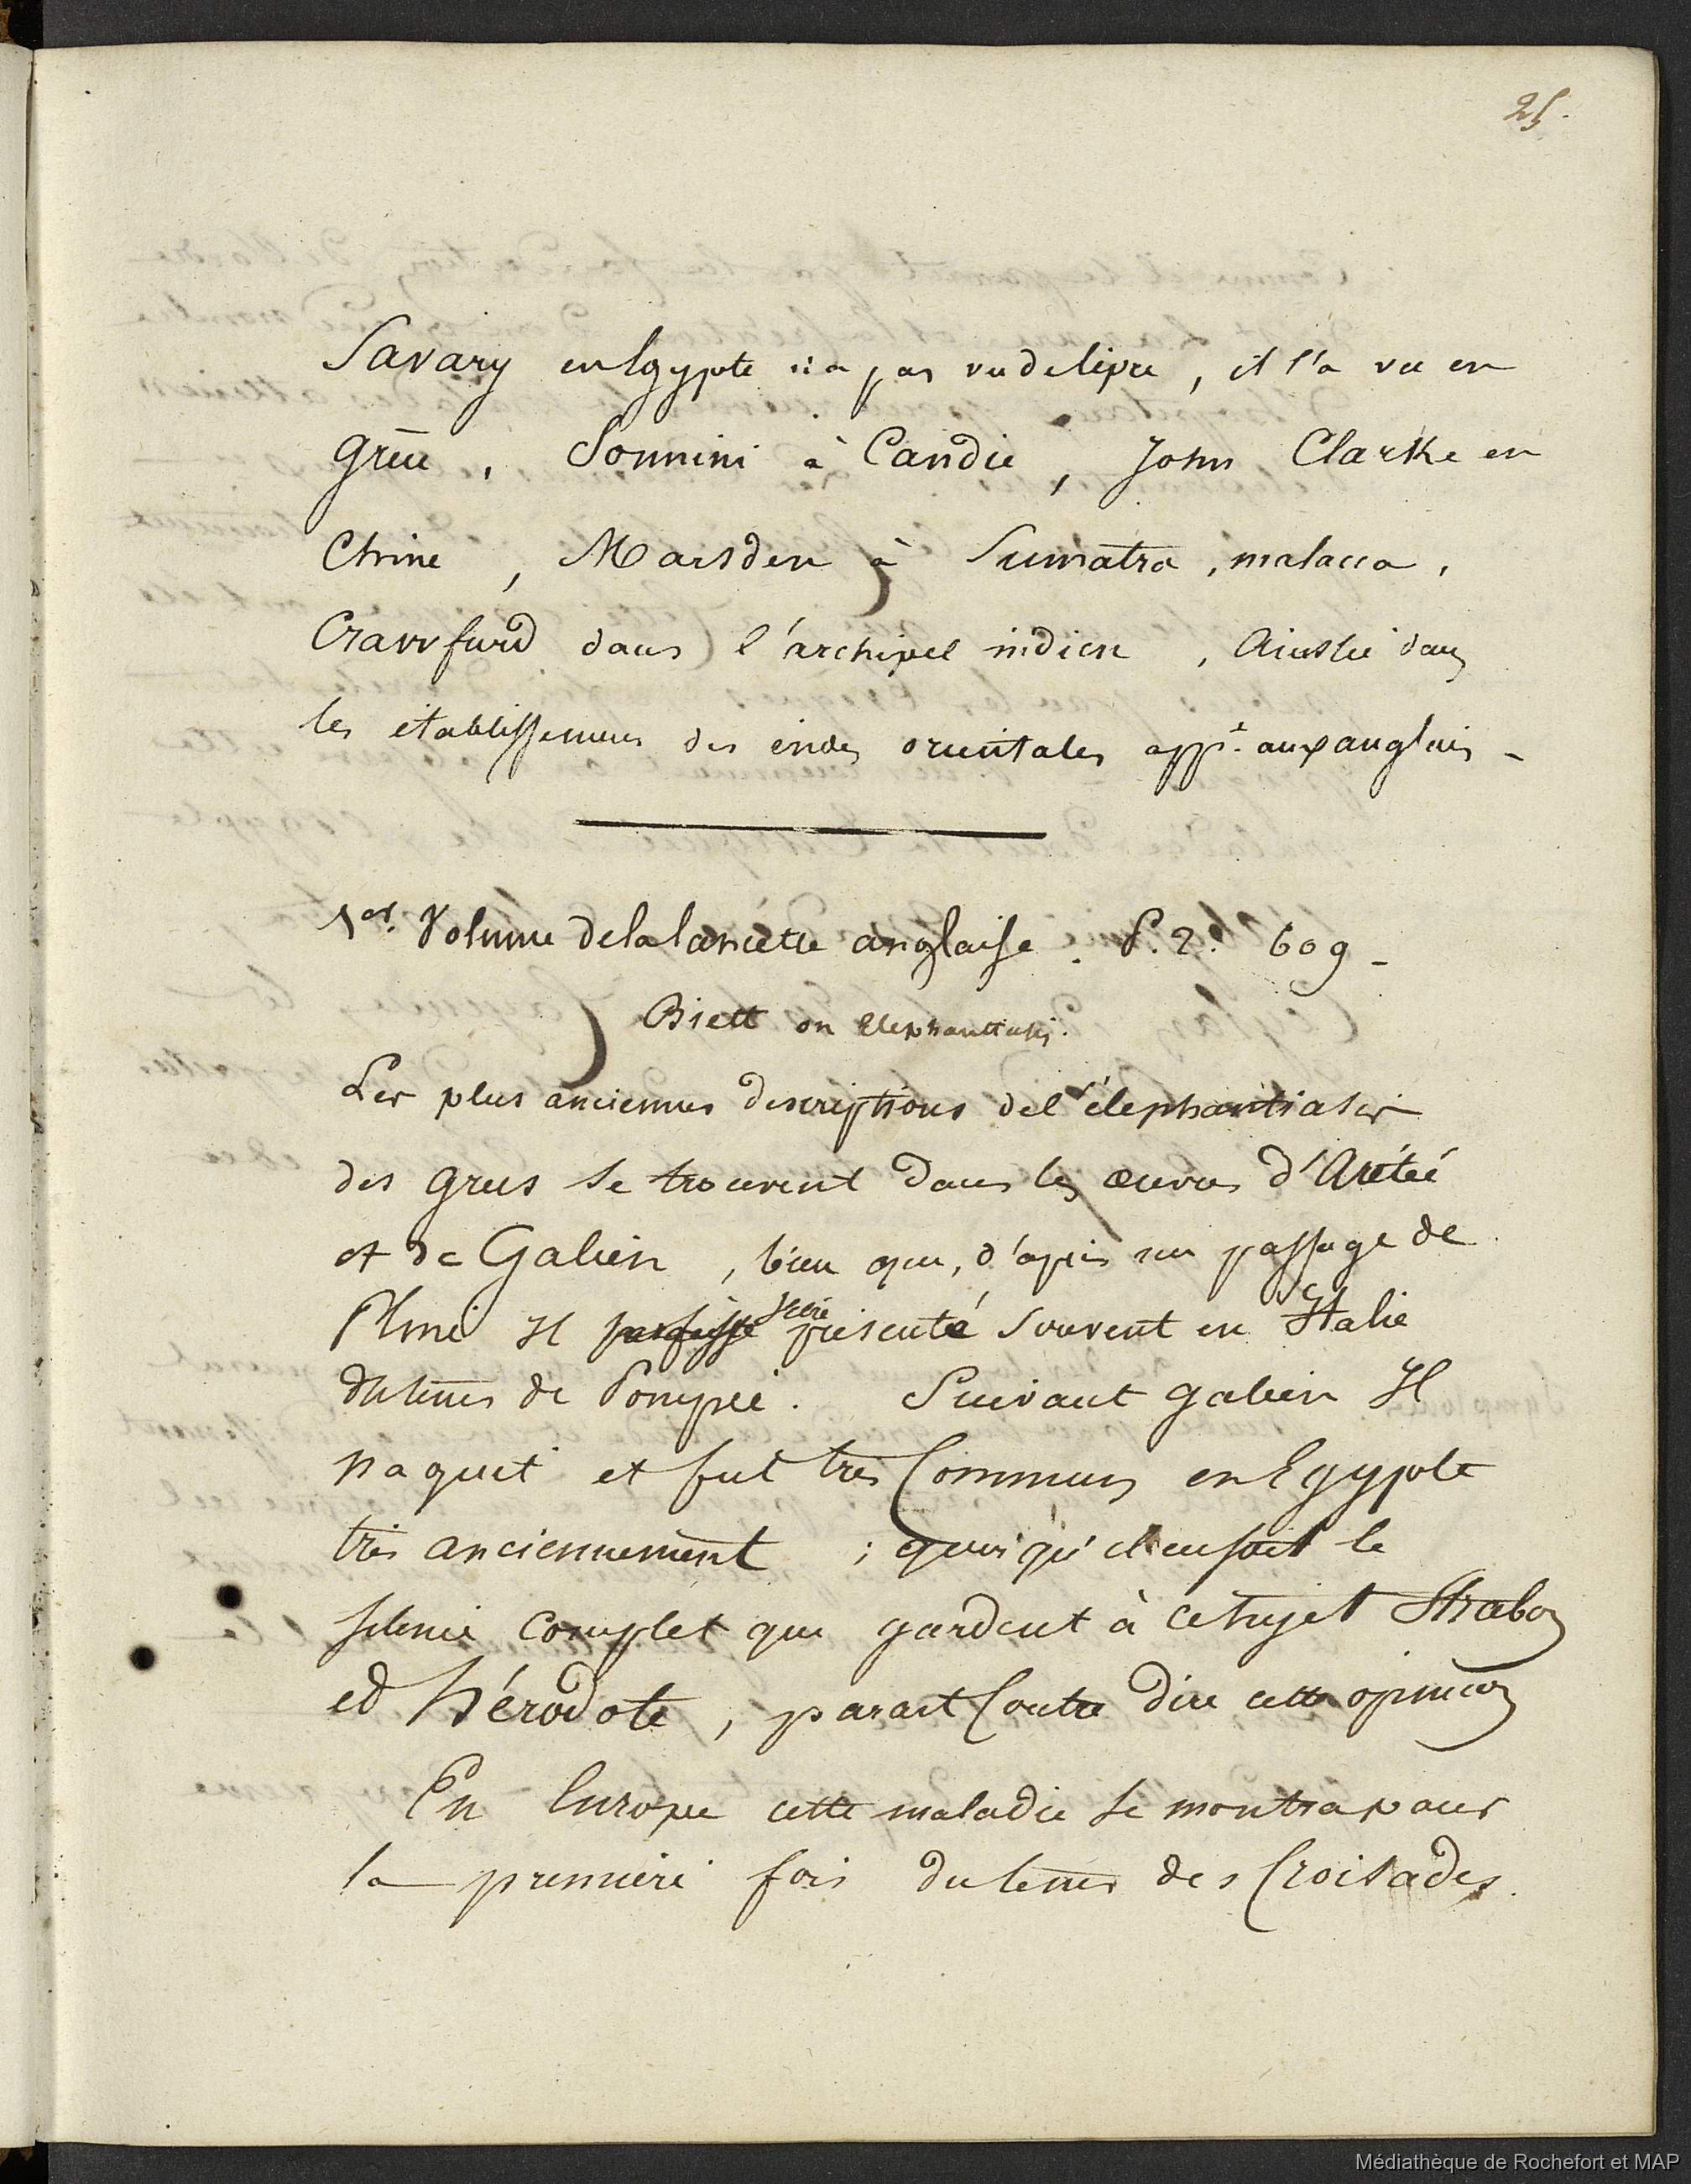 25.
Savary en Egypte n'a pas vu de lèpre, il l'a vu en
Grèce, Sonnini à Candie, John Clarke en
Chine, Marsden à Sumatra, malacca,
Crawfurd dans l'archipel indien, Ainslie dans
les établissemens des indes orientales appt. aux anglais -
1er. Volume de la lancette anglaise. P. 2e. 609 -
Biett on Elephantiasis.
Les plus anciennes descriptions de l'élephantiasis
des grecs se trouvent dans les œuvres d'Arétée
et de Galien, bien que, d'après un passage de
Pline Il se présenté souvent en Italie
du tems de Pompée. Suivant galien Il
naquit et fut très Commun en Egypte
très anciennement ; quoiqu'il en soit le
silence complet que gardent à ce sujet Strabon
et hérodote, parait Contre dire cette opinion
En Europe cette maladie se montra pour
la première fois du tems des Croisades.
Médiathèque de Rochefort et MAP